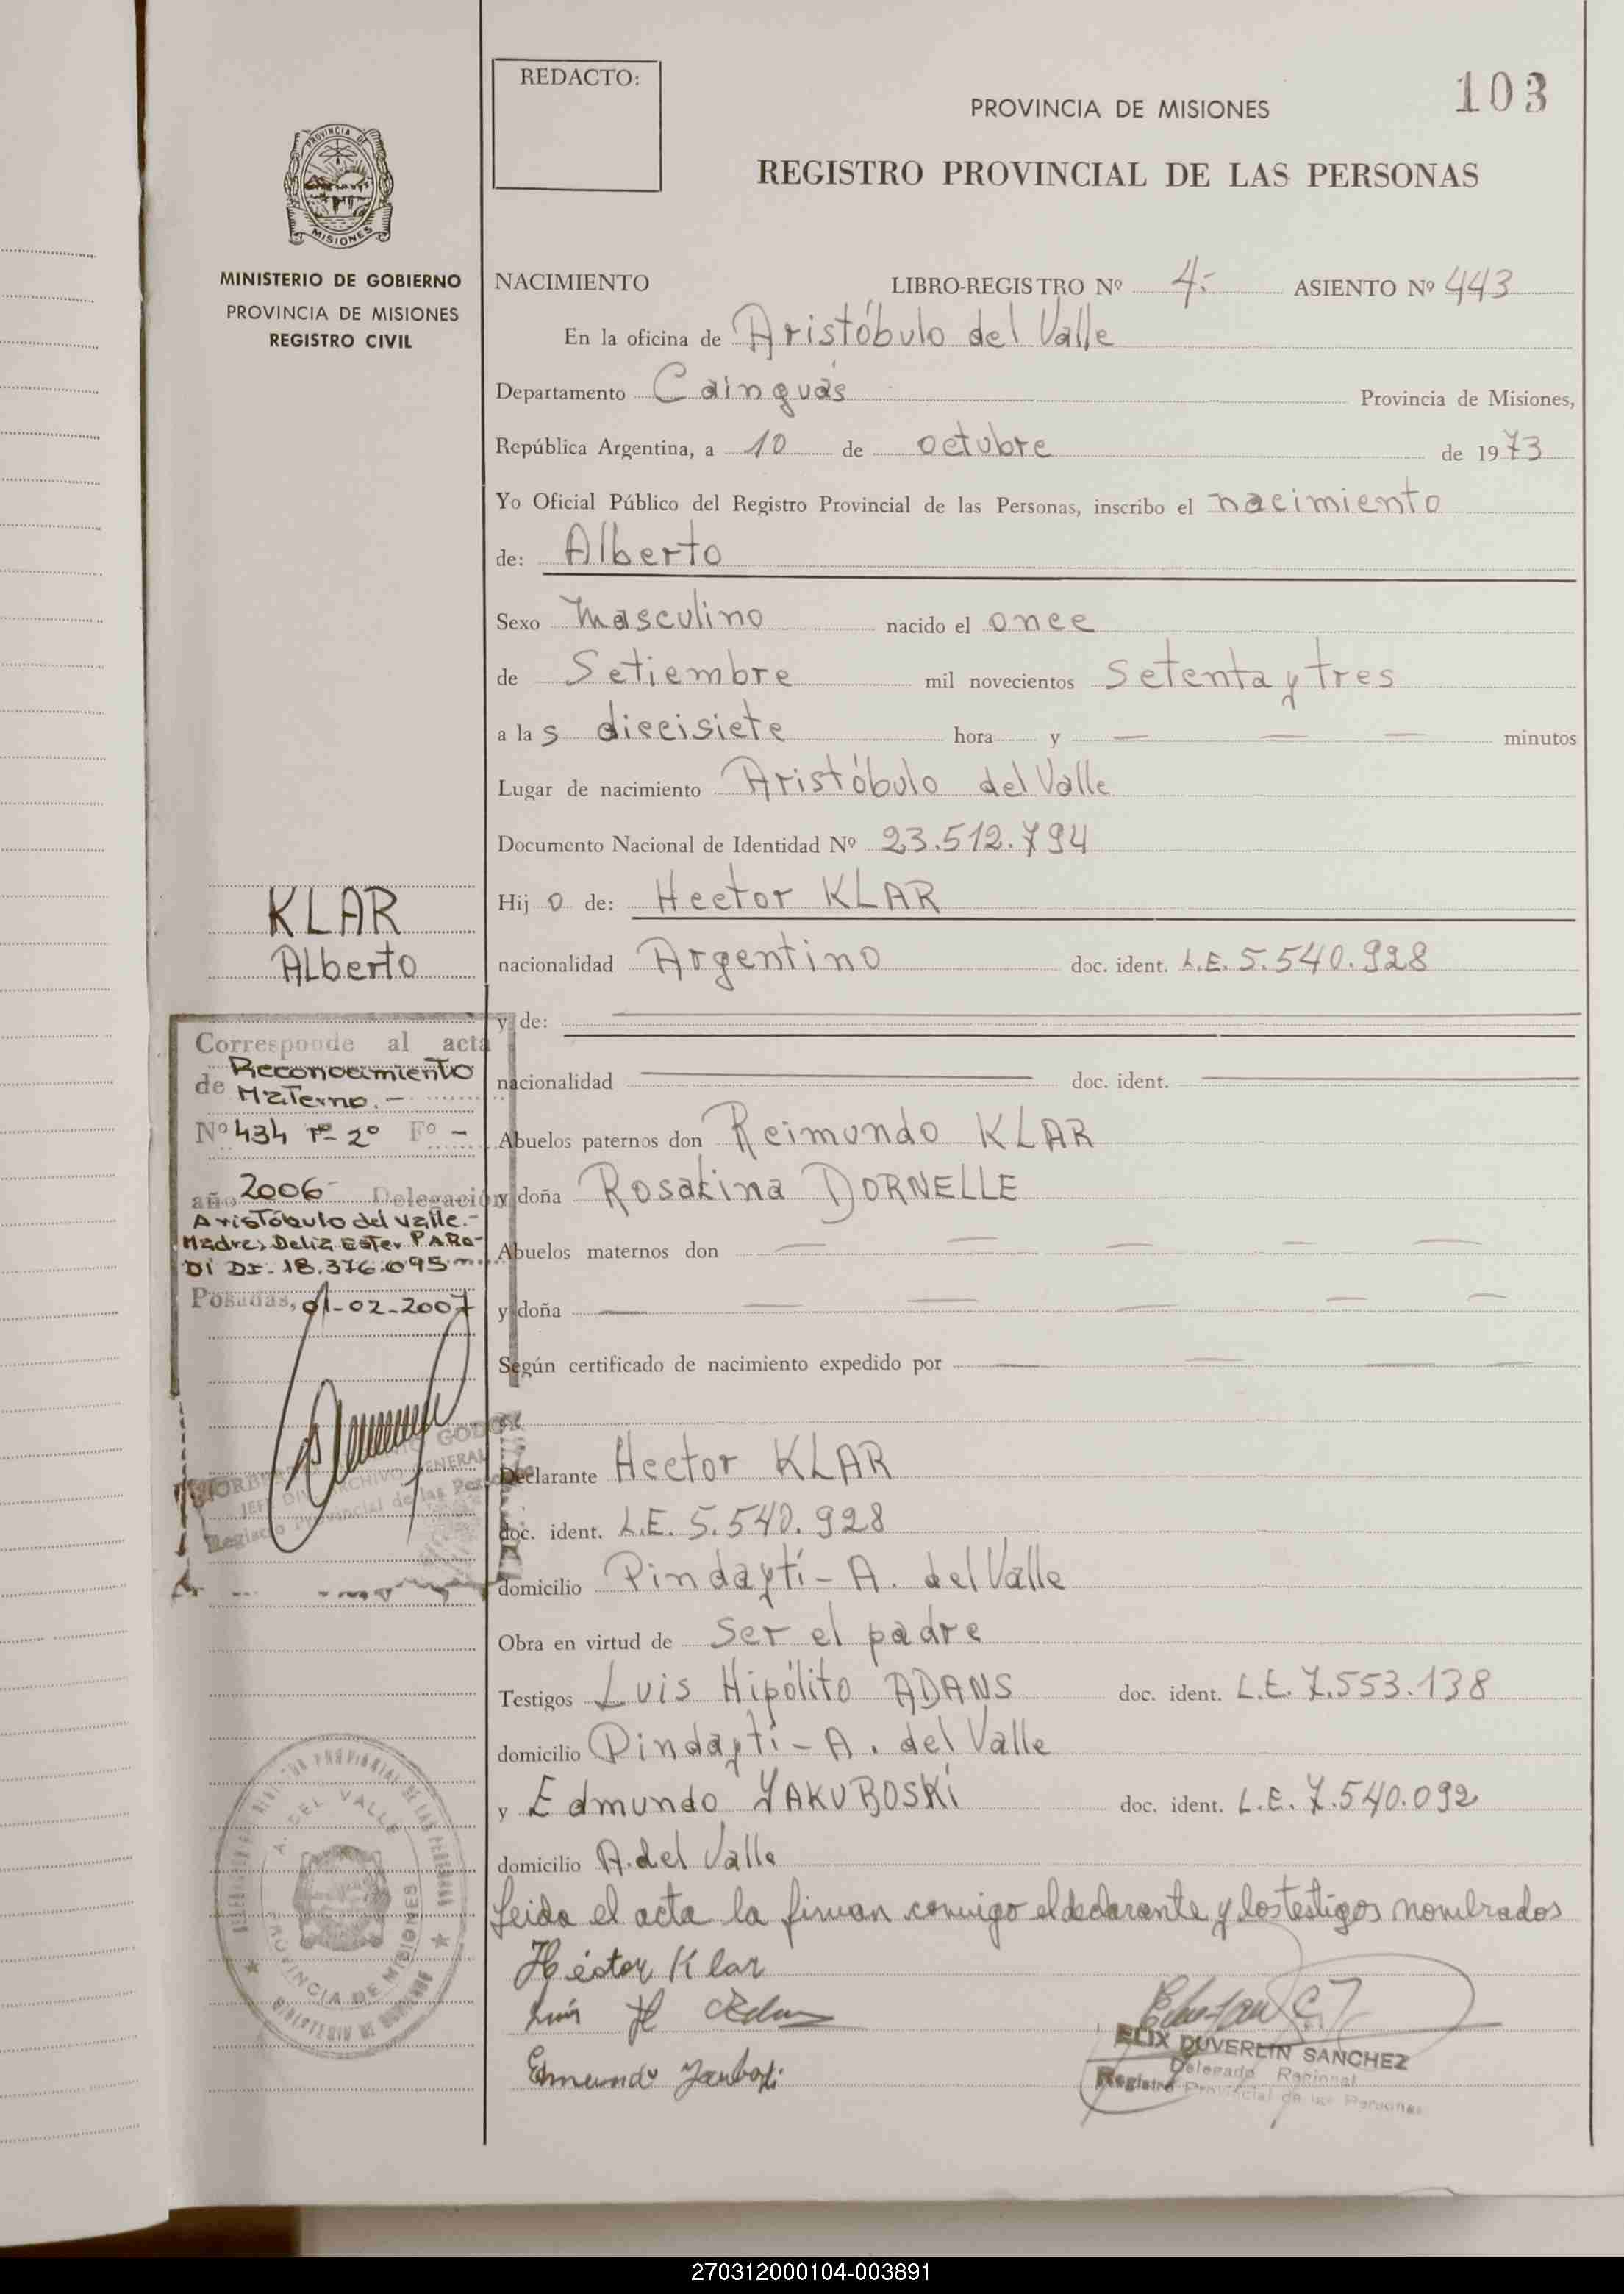 REDACTO:
103
PROVINCIA DE MISIONES
REGISTRO PROVINCIAL DE LAS PERSONAS
PROVINCIA DE MISIONES
MINISTERIO DE GOBIERNO
PROVINCIA DE MISIONES
REGISTRO CIVIL
NACIMIENTO LIBRO-REGISTRO Nº 4.- ASIENTO Nº 443
En la oficina de Aristóbulo del Valle
Departamento Cainguás Provincia de Misiones,
República Argentina, a 10 de octubre de 1973
Yo Oficial Público del Registro Provincial de las Personas, inscribo el nacimiento
de: Alberto
Sexo Masculino nacido el once
de Setiembre mil novecientos setenta y tres
a las diecisiete hora y — — — minutos
Lugar de nacimiento Aristóbulo del Valle
Documento Nacional de Identidad Nº 23.512.794
Hijo de: Hector KLAR
nacionalidad Argentino doc. ident. L.E. 5.540.928
y de:
nacionalidad doc. ident.
Abuelos paternos don Reimundo KLAR
y doña Rosalina DORNELLE
Abuelos maternos don — — — — —
y doña — — — — — —
Según certificado de nacimiento expedido por — — — —
Declarante Hector KLAR
doc. ident. L.E. 5.540.928
domicilio Pindaytí - A. del Valle
Obra en virtud de ser el padre
Testigos Luis Hipólito ADANS doc. ident. L.E. 7.553.138
domicilio Pindaytí - A. del Valle
y Edmundo YAKUBOSKI doc. ident. L.E. 7.540.092
domicilio A. del Valle
Leida el acta la firman conmigo el declarante y los testigos nombrados
Héctor Klar
Luis H
Edmundo
ELIX DUVERLIN SANCHEZ
Delegado Regional
Registro Provincial de las Personas
KLAR
Alberto
Corresponde al acta
de Reconocimiento
Materno.-
Nº 434 Tº 2º Fº -
año 2006- Delegación
Aristóbulo del Valle.-
Madre: Delia Ester PARO-
DI DI- 18.376.095
Posadas, 01-02-2007
GODOY
JEFE DIV. ARCHIVO GENERAL
Registro Provincial de las Personas
A. DEL VALLE
PROVINCIA DE MISIONES
270312000104-003891